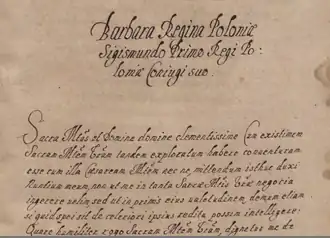 Barbara Regina Poloniæ
Sigismundo Primo Regi Po:
loniæ Coniugi suo.
Sacra Mtas et Domine domine clementissime Cum existimem
Sacram Mtem Vram tandem exploratum habere conventuram
esse cum illa Cæsaream Mtem nec ne, mittendum istuc duxi
Nuntium meum, non ut me in tanta Sacræ Mtis Vræ negotia
ingerere velim sed ut in primis eius valetudinem demum etiam
si quid spei sit de celeriori ipsius reditu possim intelligere:
Quare humiliter rogo Sacram Mtem Vram, dignetur me de